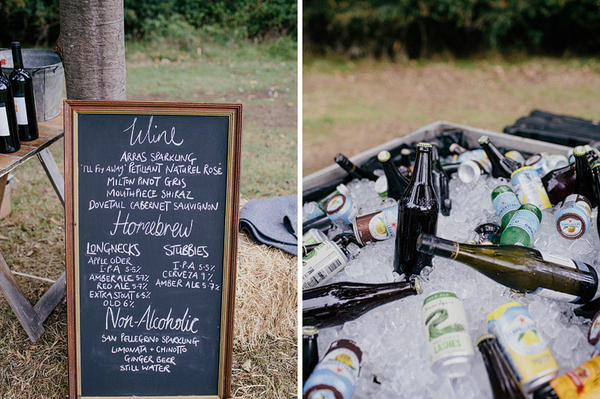 Wine
ARRAS SPARKLING
'I'LL FLY AWAY' PETILLANT NATUREL ROSÉ
MILTON PINOT GRIS
MOUTHPIECE SHIRAZ
DOVETAIL CABERNET SAUVIGNON
Homebrew
LONGNECKS
APPLE CIDER
I.P.A 5·5%
AMBER ALE 5·7%
RED ALE 5·7%
EXTRA STOUT 6·5%
OLD 6%
STUBBIES
I.P.A 5·5%
CERVEZA 4%
AMBER ALE 5·7%
Non-Alcoholic
SAN PELLEGRINO SPARKLING
LIMONATA + CHINOTTO
GINGER BEER
STILL WATER
2